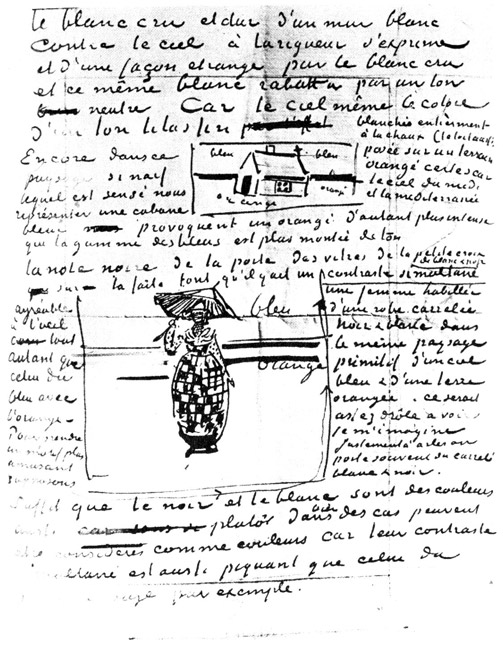 le blanc cru et dur d'un mur blanc
contre le ciel à la rigueur s'exprime
et d'une façon étrange par le blanc cru
et ce même blanc rabattu par un ton
neutre Car le ciel même le colore
d'un ton lilas fin
Encore dans ce
paysage si naif
lequel est sensé nous
représenter une cabane
blanchie entièrement
à la chaux (le toit aussi)
posée sur un terrain
orangé certes car
le ciel du midi
et la méditerranée
bleu
bleu
orangé
orangé
bleue provoquent un orangé d'autant plus intense
que la gamme des bleus est plus montée de ton
la note noire de la porte des vitres de la petite croix
sur le faîte fait qu'il y ait un contraste simultané
de blanc & noir
agréable
à l'oeil
tout
autant que
celui du
bleu avec
l'orangé.
Pour prendre
un motif plus
amusant
supposons
bleu
orangé
une femme habillée
d'une robe carrelée
noir & blanc dans
le même paysage
primitif d'un ciel
bleu & d'une terre
orangée. ce serait
assez drôle à voir
je m'imagine
Justement à arles on
porte souvent du carrelé
blanc & noir.
Suffit que le noir et le blanc sont des couleurs
aussi plutôt dans bien des cas peuvent
être considérés comme couleurs car leur contraste
simultané est aussi piquant que celui du
rouge par exemple.